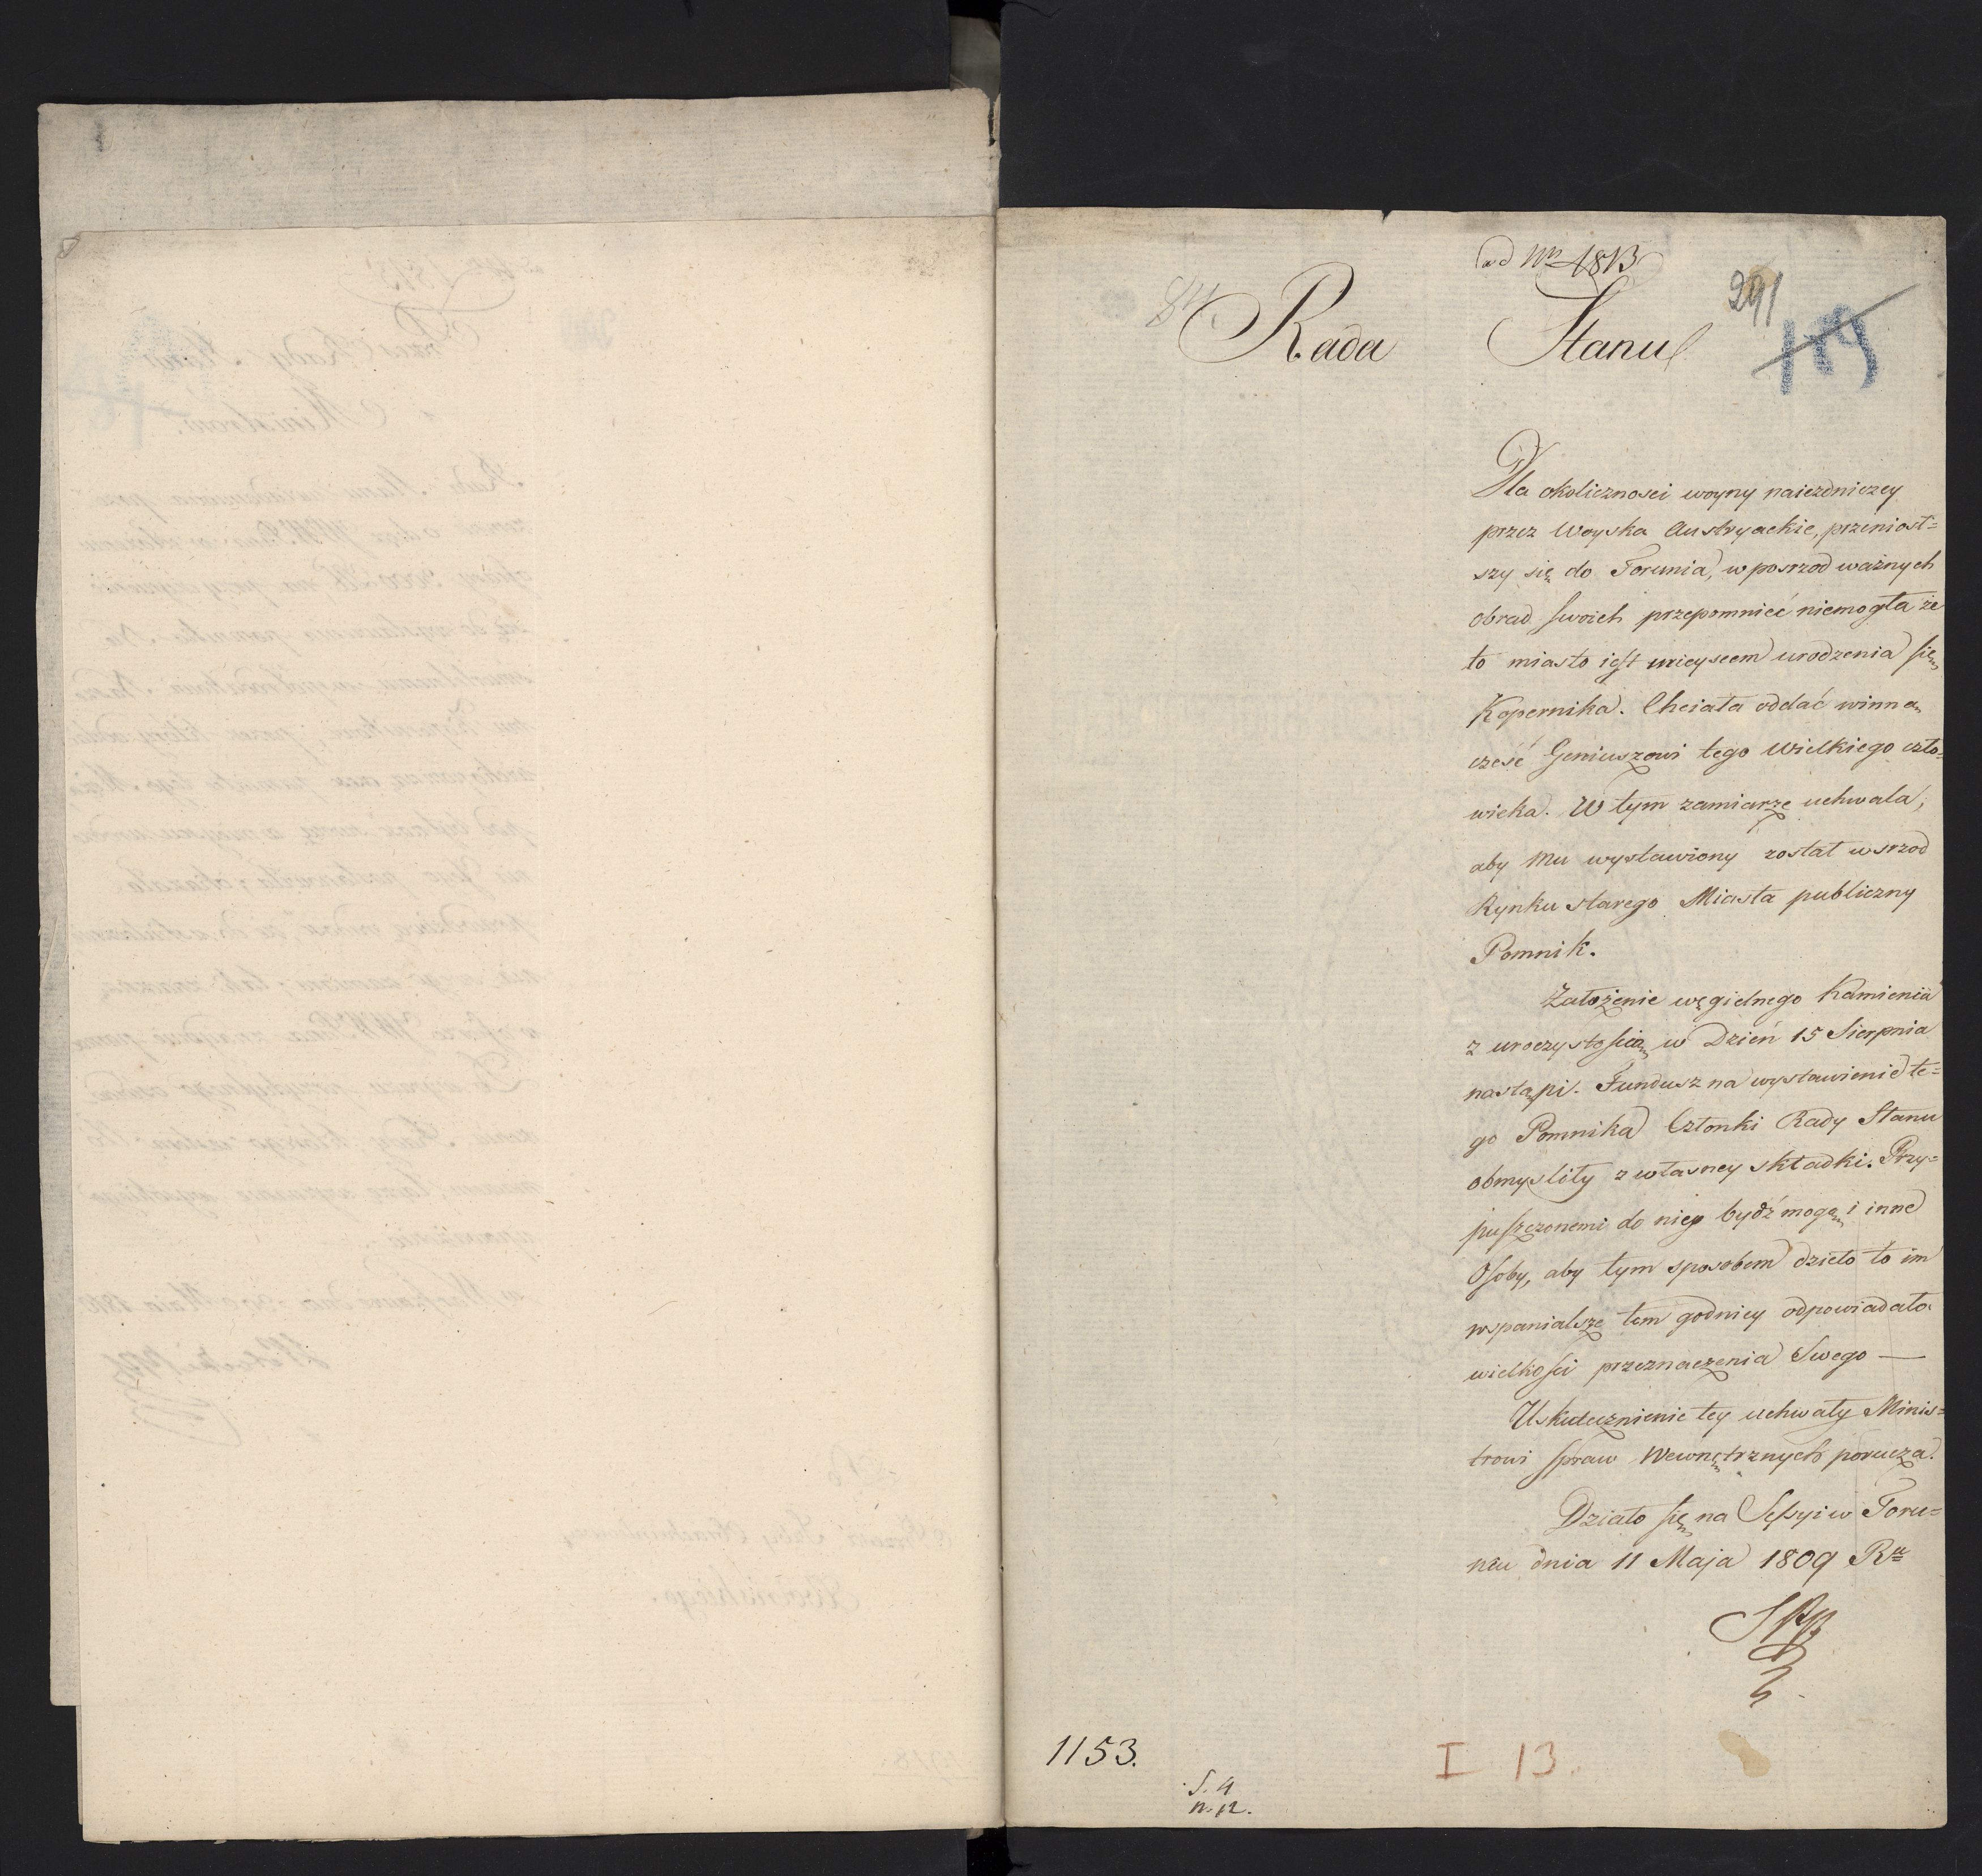 ad Nrũ 1813
291
119
84
Rada Stanu
Dla okolicznosci woyny naiezdniczey
przez Woyska Austryackie, przeniosł=
szy się do Torunia, w posrzod ważnych
obrad swoich przepomnieć niemogła że
to miasto iest mieyscem urodzenia się
Kopernika. Chciała oddać winną
cześć Geniuszowi tego Wielkiego czło=
wieka. W tym zamiarze uchwala,
aby Mu wystawiony został wsrzod
Rynku starego Miasta publiczny
Pomnik.
Założenie węgielnego Kamienia
z uroczystością w Dzień 15 Sierpnia
nastąpi. Fundusz na wystawienie te=
go Pomnika Członki Rady Stanu
obmysliły z własney składki. Przy=
puszczonemi do niey bydź mogą i inne
Osoby, aby tym sposobem dzieło to im
wspanialsze tem godniey odpowiadało
wielkości przeznaczenia Swego —
Uskutecznienie tey uchwały Minis=
trowi Spraw Wewnętrznych porucza.
Działo się na Sessyi w Toru=
niu dnia 11 Maja 1809 Ru
1153.
S. 4
n. 12.
I 13.